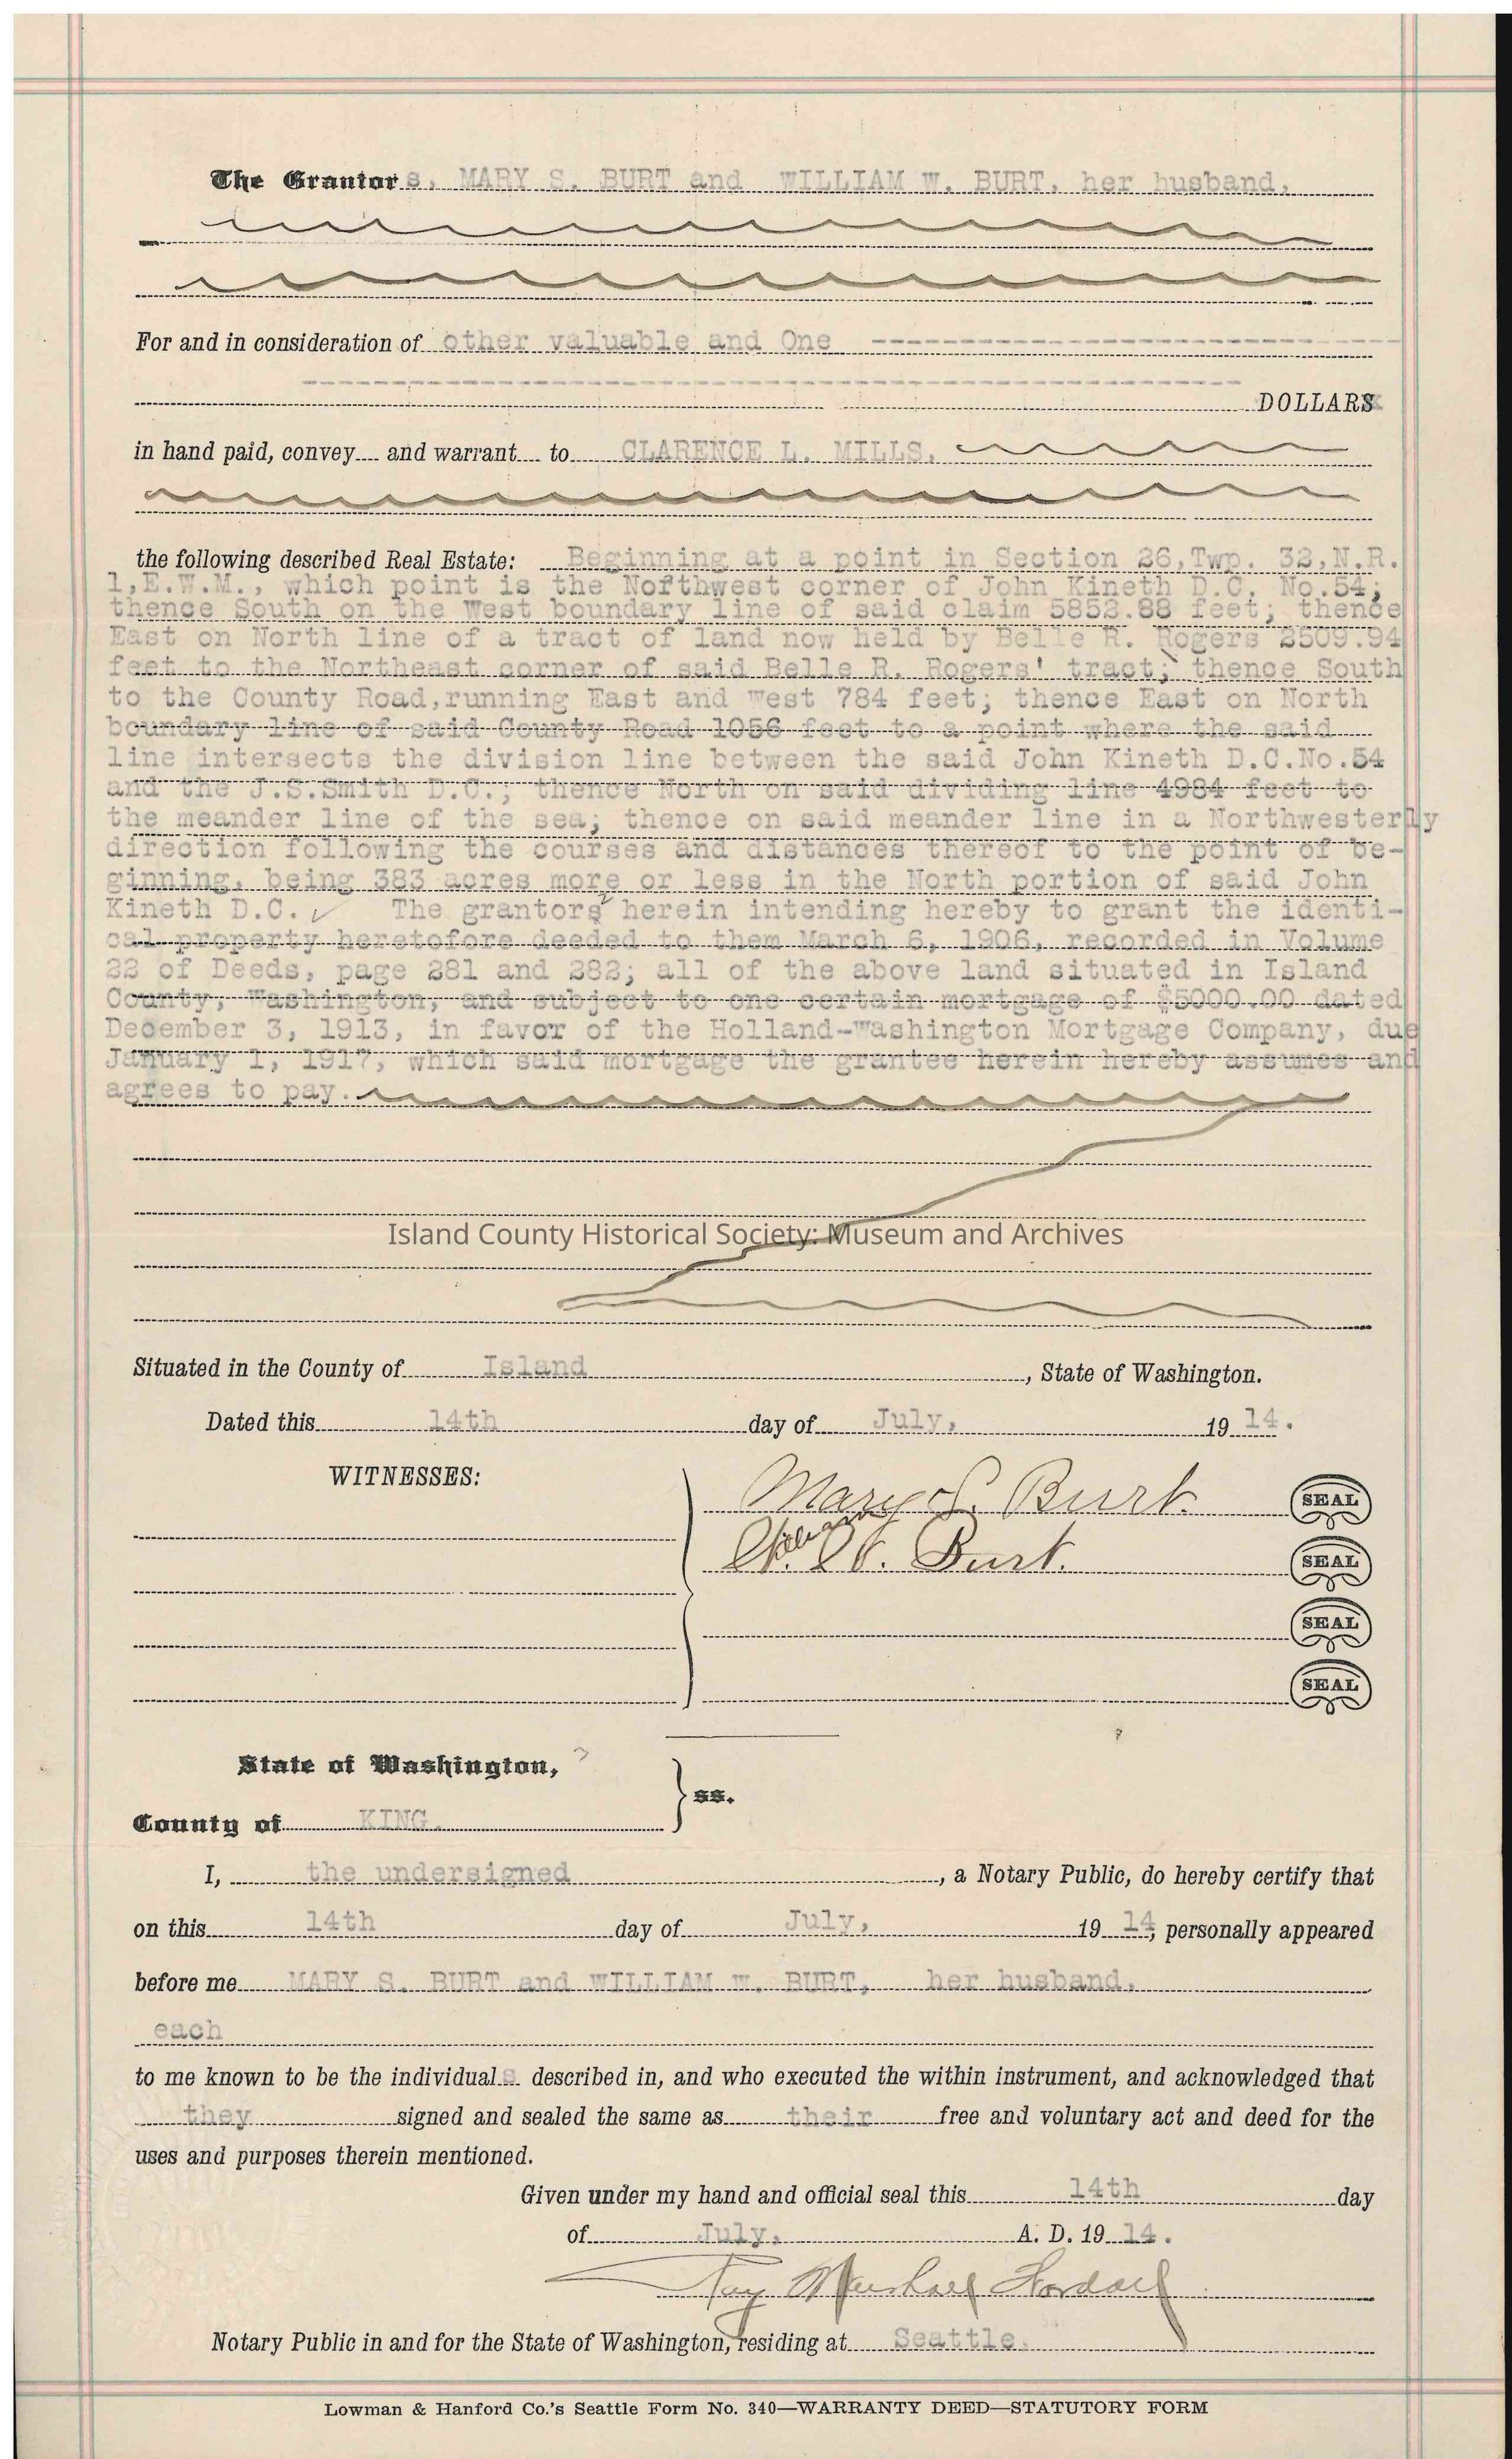 The Grantors, MARY S. BURT and WILLIAM W. BURT, her husband,
For and in consideration of other valuable and One
DOLLARS
in hand paid, convey and warrant to CLARENCE L. MILLS,
the following described Real Estate: Beginning at a point in Section 26, Twp. 32, N.R.
1, E.W.M., which point is the Northwest corner of John Kineth D.C. No.54;
thence South on the West boundary line of said claim 5852.88 feet; thence
East on North line of a tract of land now held by Belle R. Rogers 2509.94
feet to the Northeast corner of said Belle R. Rogers' tract; thence South
to the County Road, running East and West 784 feet; thence East on North
boundary line of said County Road 1056 feet to a point where the said
line intersects the division line between the said John Kineth D.C.No.54
and the J.S.Smith D.C.; thence North on said dividing line 4984 feet to
the meander line of the sea; thence on said meander line in a Northwesterly
direction following the courses and distances thereof to the point of be-
ginning, being 383 acres more or less in the North portion of said John
Kineth D.C. The grantors herein intending hereby to grant the identi-
cal property heretofore deeded to them March 6, 1906, recorded in Volume
32 of Deeds, page 281 and 282; all of the above land situated in Island
County, Washington, and subject to one certain mortgage of $5000.00 dated
December 3, 1913, in favor of the Holland-Washington Mortgage Company, due
January 1, 1917, which said mortgage the grantee herein hereby assumes and
agrees to pay.
Island County Historical Society: Museum and Archives
Situated in the County of Island, State of Washington.
Dated this 14th day of July, 1914.
WITNESSES:
Mary S. Burt SEAL
W. Burt. SEAL
SEAL
SEAL
State of Washington,
ss.
County of KING.
I, the undersigned, a Notary Public, do hereby certify that
on this 14th day of July, 1914, personally appeared
before me MARY S. BURT and WILLIAM W. BURT, her husband,
each
to me known to be the individuals described in, and who executed the within instrument, and acknowledged that
they signed and sealed the same as their free and voluntary act and deed for the
uses and purposes therein mentioned.
Given under my hand and official seal this 14th day
of July, A. D. 1914.
Marshall
Notary Public in and for the State of Washington, residing at Seattle.
Lowman & Hanford Co.'s Seattle Form No. 340—WARRANTY DEED—STATUTORY FORM